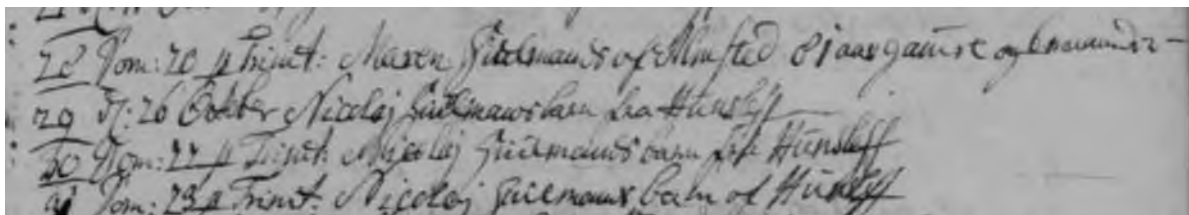 28 Dom: 20 p Trinit: Maren Giielmands of Almsted 81 aar gamel og
29 d: 26 October Nicolaj Giielmands barn fra Hünsleff
30 Dom: 22 p Trinit: Nicolaj Giielmands barn fra Hünsleff
Dom: 23 p Trinit: Nicolaj Giielmans barn of Hünsleff